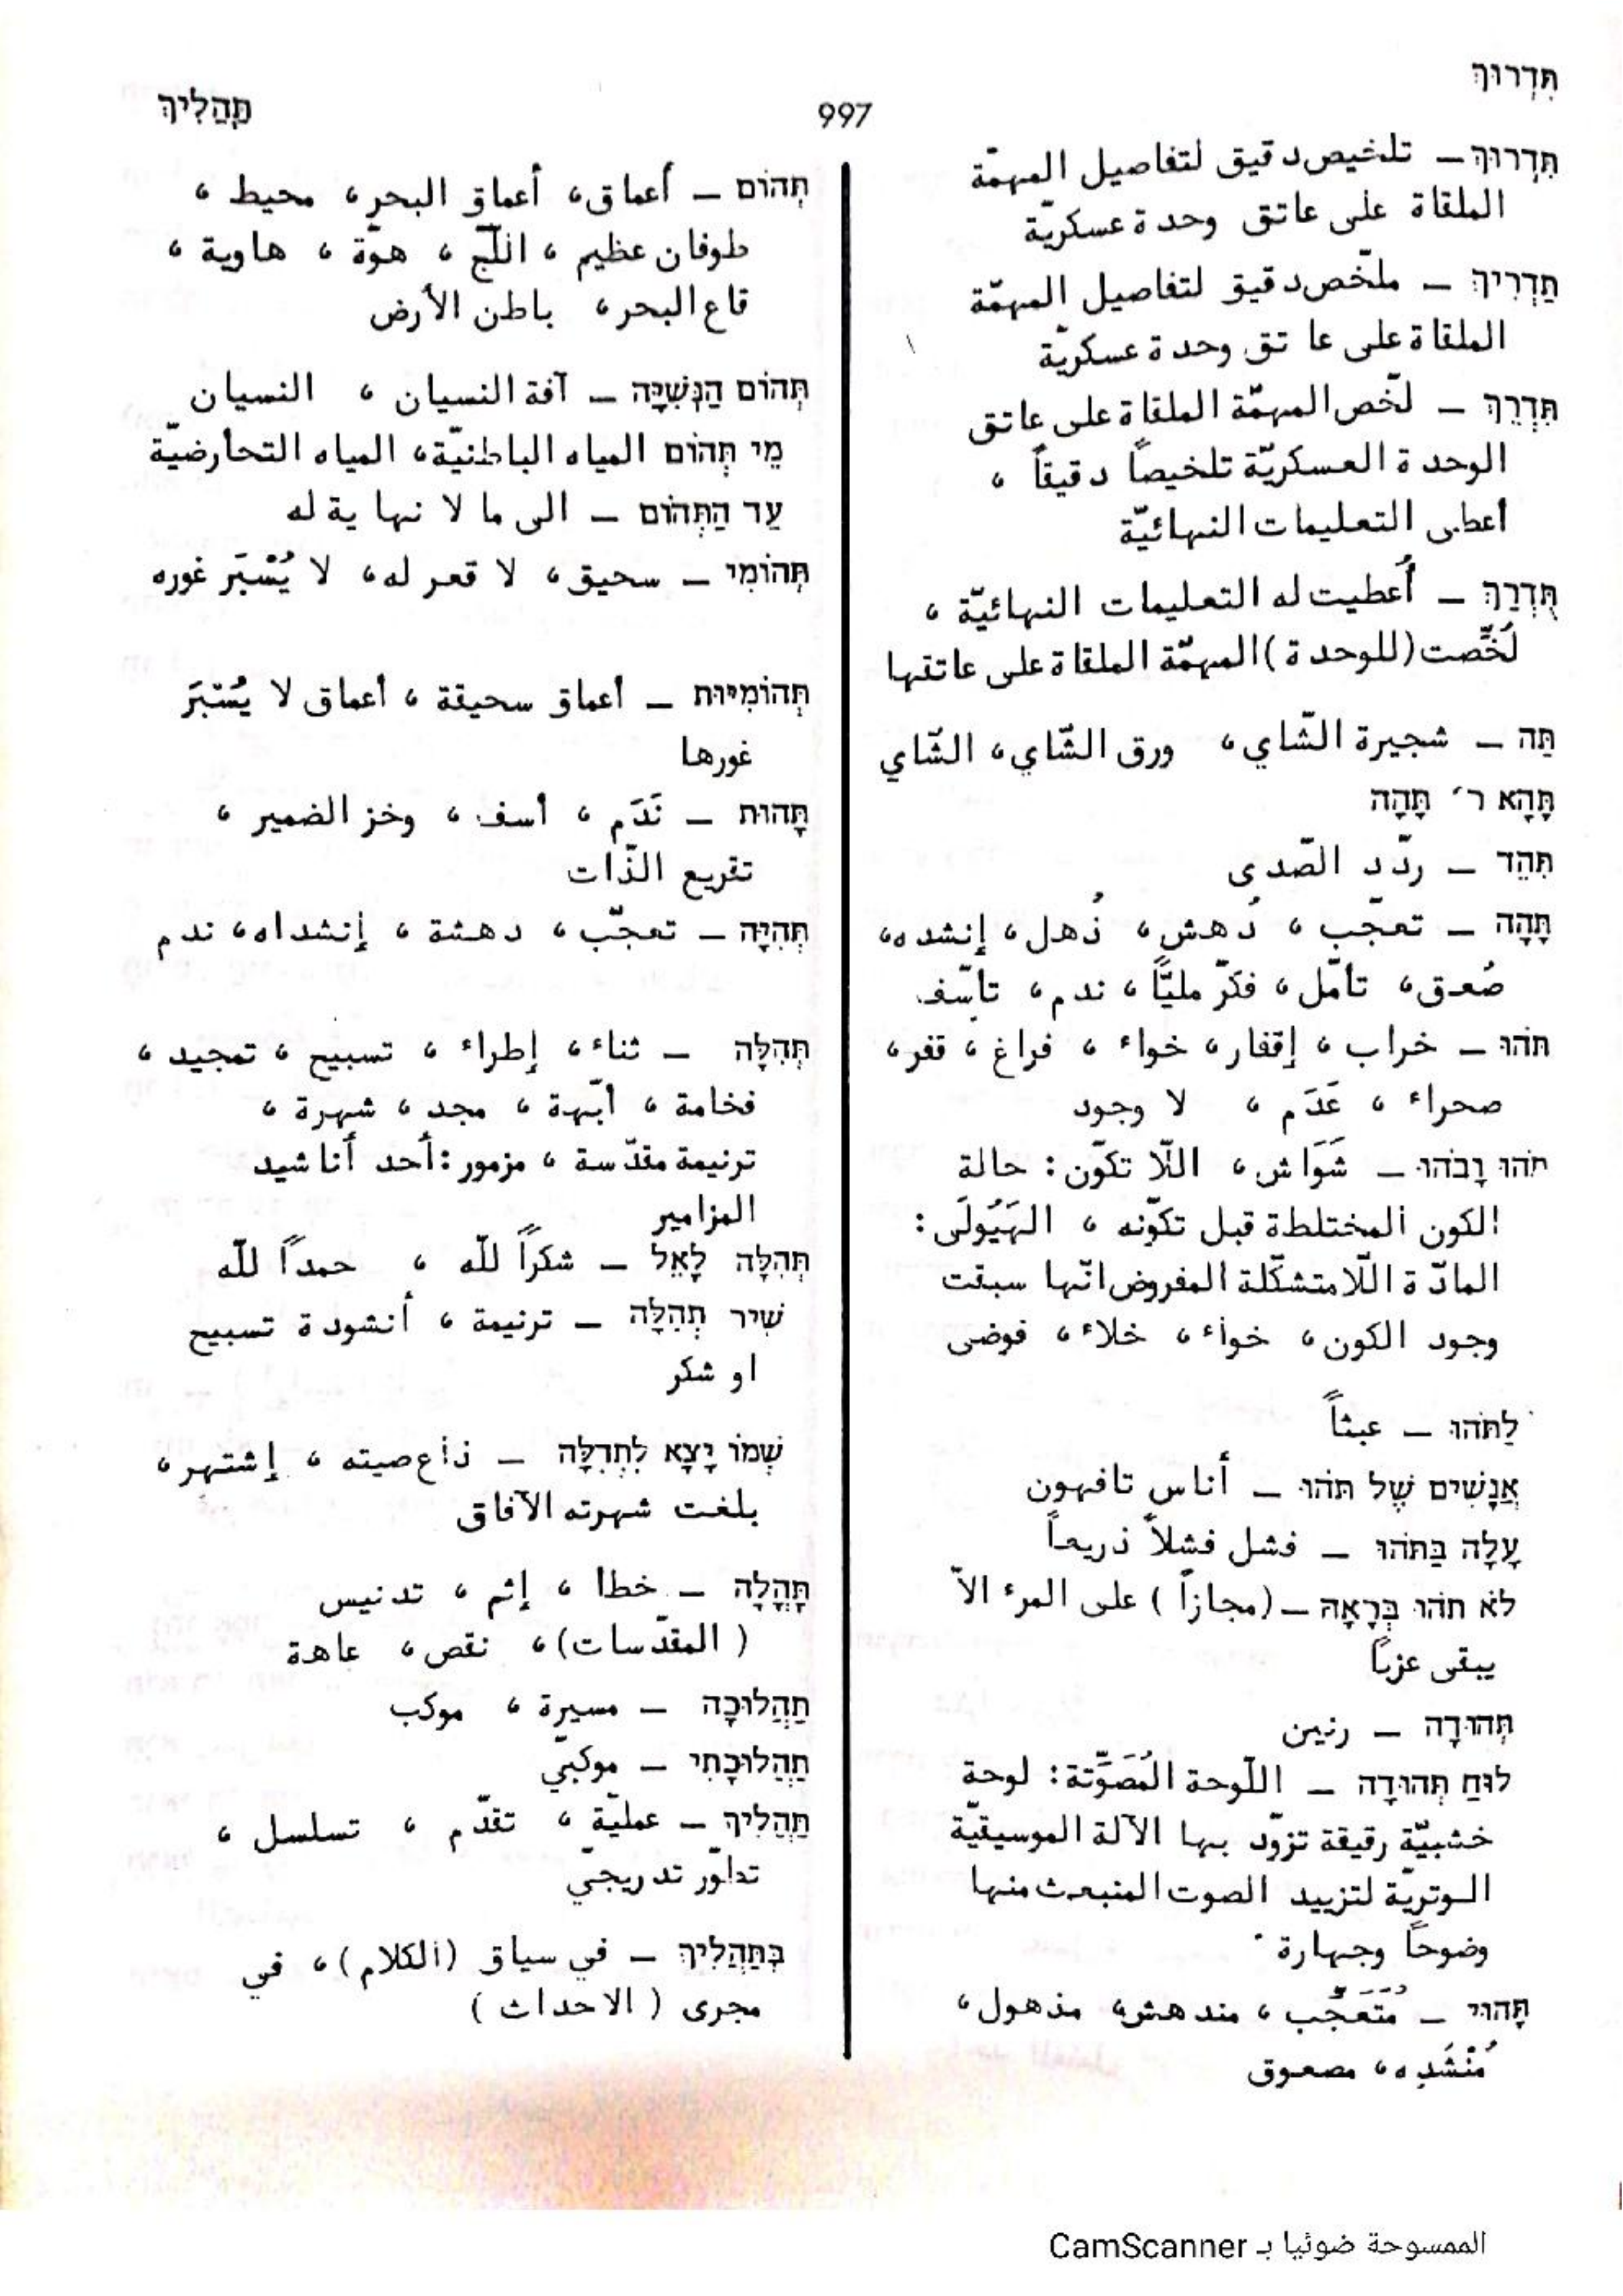 תִּדְרוּךְ
997
תַּהֲלִיךְ
תִּדְרוּךְ – تلخيص دقيق لتفاصيل المهمّة
الملقاة على عاتق وحدة عسكريّة
תַּדְרִיךְ – ملخّص دقيق لتفاصيل المهمّة
الملقاة على عاتق وحدة عسكريّة
תִּדְרֵךְ – لخّص المهمّة الملقاة على عاتق
الوحدة العسكريّة تلخيصاً دقيقاً ،
أعطى التعليمات النهائيّة
תֻּדְרַךְ – أُعطيت له التعليمات النهائيّة ،
لُخِّصت (للوحدة) المهمّة الملقاة على عاتقها
תֵּה – شجيرة الشّاي ، ورق الشّاي ، الشّاي
תָּהָא ר׳ תָּהָה
תִּהֵד – ردّد الصّدى
תָּהָה – تعجّب ، دُهش ، ذُهل ، إنشده ،
صُعق ، تأمّل ، فكّر مليًّا ، ندم ، تأسّف
תֹּהוּ – خراب ، إقفار ، خواء ، فراغ ، قفر ،
صحراء ، عَدَم ، لا وجود
תֹּהוּ וָבֹהוּ – شَوَاش ، اللّا تكوّن : حالة
الكون المختلطة قبل تكوّنه ، الهَيُولَى :
المادّة اللّامتشكّلة المفروض انّها سبقت
وجود الكون ، خواء ، خلاء ، فوضى
לַתֹּהוּ – عبثاً
אֲנָשִׁים שֶׁל תֹּהוּ – أناس تافهون
עָלָה בַּתֹּהוּ – فشل فشلاً ذريعاً
לֹא תֹהוּ בְּרָאָהּ – (مجازاً) على المرء الاّ
يبقى عزباً
תְּהוּדָה – رنين
לוּחַ תְּהוּדָה – اللّوحة المُصَوِّتة : لوحة
خشبيّة رقيقة تزوّد بها الآلة الموسيقيّة
الوتريّة لتزييد الصوت المنبعث منها
وضوحاً وجهارة
תָּהוּי – مُتَعَجّب ، مندهش ، مذهول ،
مُنْشَدِه ، مصعوق
תְּהוֹם – أعماق ، أعماق البحر ، محيط ،
طوفان عظيم ، اللّجّ ، هوّة ، هاوية ،
قاع البحر ، باطن الأرض
תְּהוֹם הַנְּשִׁיָּה – آفة النسيان ، النسيان
מֵי תְּהוֹם المياه الباطنيّة ، المياه التحأرضيّة
עַד הַתְּהוֹם – الى ما لا نهاية له
תְּהוֹמִי – سحيق ، لا قعر له ، لا يُسْبَر غوره
תְּהוֹמִיּוּת – أعماق سحيقة ، أعماق لا يُسْتَبرَ
غورها
תָּהוּת – نَدَم ، أسف ، وخز الضمير ،
تقريع الذّات
תְּהִיָּה – تعجّب ، دهشة ، إنشداه ، ندم
תְּהִלָּה – ثناء ، إطراء ، تسبيح ، تمجيد ،
فخامة ، أبّهة ، مجد ، شهرة ،
ترنيمة مقدّسة ، مزمور : أحد أناشيد
المزامير
תְּהִלָּה לָאֵל – شكراً للّه ، حمداً للّه
שִׁיר תְּהִלָּה – ترنيمة ، أنشودة تسبيح
او شكر
שְׁמוֹ יָצָא לִתְהִלָּה – ذاع صيته ، إشتهر ،
بلغت شهرته الآفاق
תָּהֳלָה – خطأ ، إثم ، تدنيس
(المقدّسات) ، نقص ، عاهة
תַּהֲלוּכָה – مسيرة ، موكب
תַּהֲלוּכָתִי – موكبيّ
תַּהֲלִיךְ – عمليّة ، تقدّم ، تسلسل ،
تطوّر تدريجيّ
בְּתַהֲלִיךְ – في سياق (الكلام) ، في
مجرى (الاحداث)
الممسوحة ضوئيا بـ CamScanner